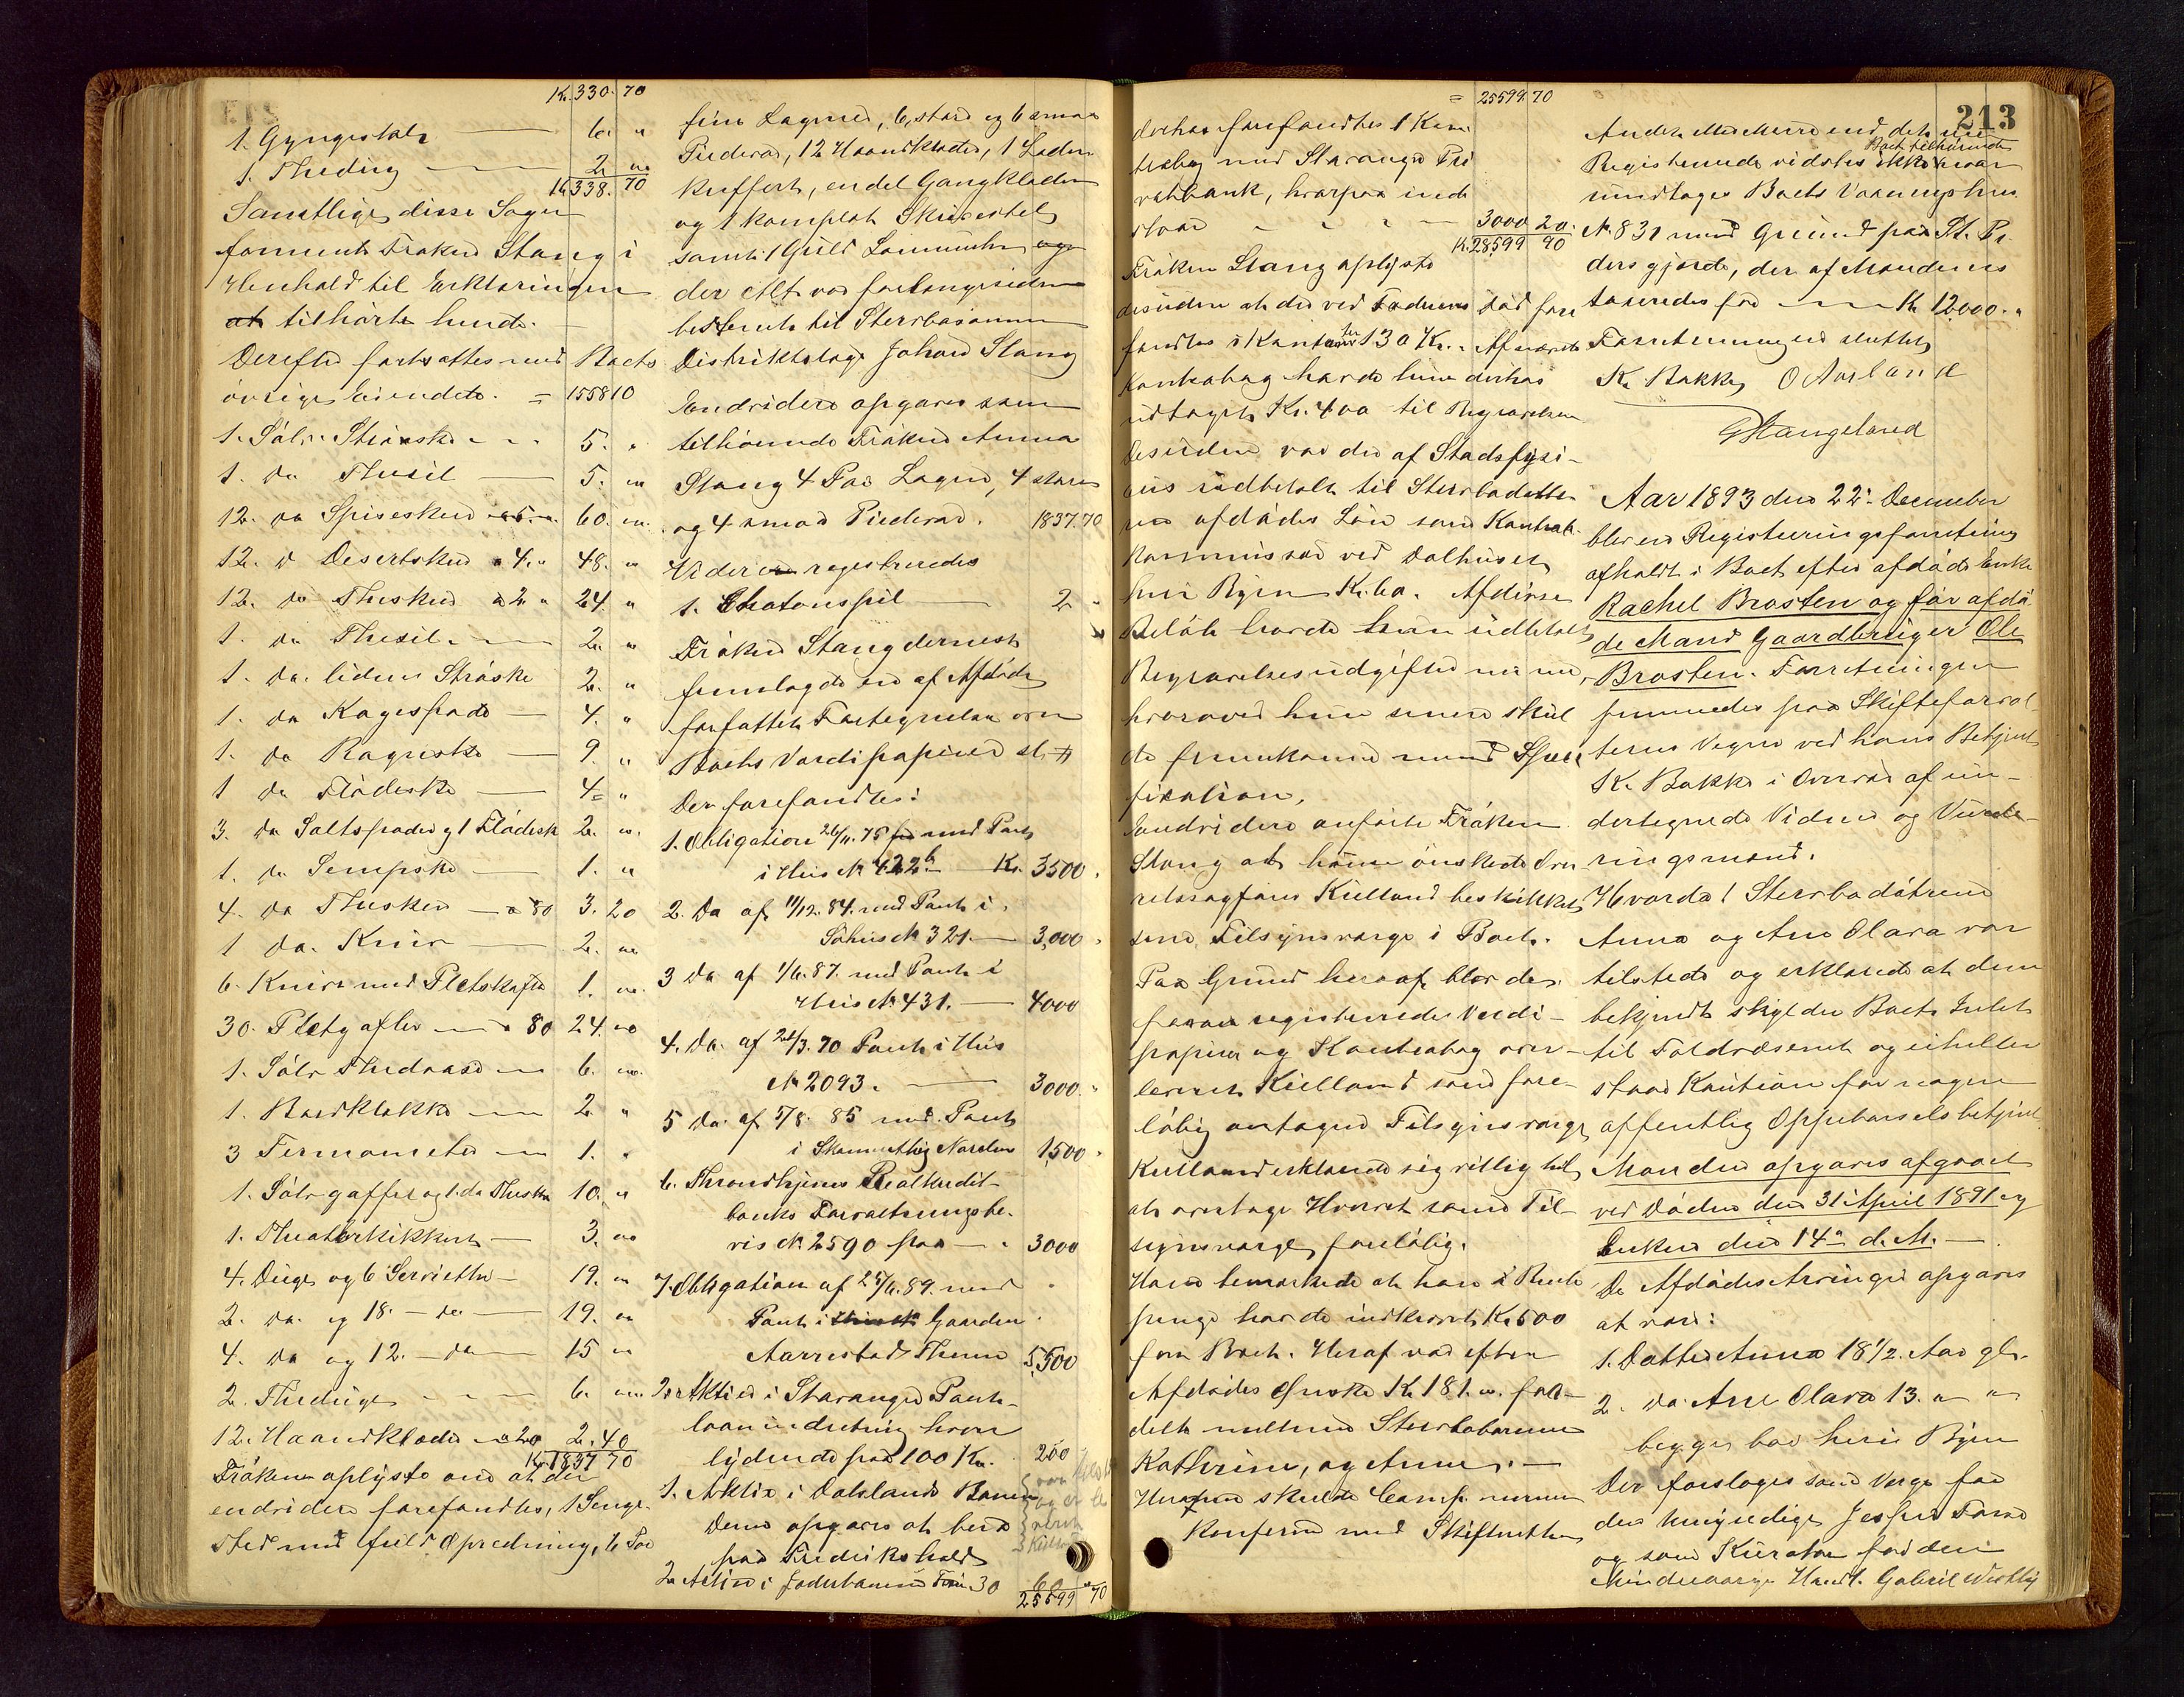 Kr. 330. 70
1. Gyngestol — 6. "
1. Thedug — 2 "
Kr. 338. 70
Samtlige disse Sager
forment Frøken Stang i
Henhold til Erklæringen
at tilhørte hende.
Derefter fortsattes med Boets
øvrige Eiendele. = 1558 10
1. Sølv Strøske - - - 5. "
1. do Thesil — 5. "
12. do Spiseskeer a 5. " 60. "
12. do Desertskeer a 4. " 48. "
12. do Theskeer a 2 " 24. "
1. do Thesil. — 2. "
1. do. liden Strøske 2. "
1. do Kagespade — 4. "
1. do Ragouske — 9. "
1 do Flødeske — 4. "
3. do Saltspader og 1 Flødesk 2. "
1. do Sempske — 1. "
4. do Theskeer — a 80 3. 20
1 do. Kniv — 2. "
6. Knive med Pletskafte 1. "
30. Pletgafler — a 80 24. "
1. Sølv Thedaase — 6. "
1. Bordklokke — 2 "
3 Termometer — 1. "
1. Sølvgaffel og 1. do Theske 10. "
1. Theaterkikkert — 3. "
4. Duge og 6 Servietter — 19. "
2. do. og 18. — do — 19. "
4. do og 12. — do — 15 "
2. Theduge - - - 6. "
12. Haandklæder a 20 2. 40
Kr. 1837 70
Frøkenen oplyste end at der
endvidere forefandtes, 1 Senge-
sted med fuld Opredning, 6 Par
fine Lagner, 6 store og 6 smaa
Puder, 12 Haandklæder, 1 Læder
kuffert, en del Gangklæder
og 1 komplet Skrivestel
samt 1 Guld Lommeuhr og
der Alt var for længesiden
bestemt til Sterbosønnen
Distriktslæge Johan Stang
Endvidere opgaves som
tilhørende Frøken Anna
Stang 4 Par Lagner, 4 store
og 4 smaa Puder. 1837. 70
Videre registreredes
1. Chatonspil — 2 "
Frøken Stang dernest
fremlagde en af Afdøde
forfattet Fortegnelse over
Boets Værdipapirer
Der forefandtes:
1. Obligation 26/11. 75 med Pant
i Hus № 422b — Kr. 3500.
2. Do af 11/12. 84. med Pant i
Søhus № 321. — 3,000
3 Do af 1/6. 87. med Pant i
Hus № 431. — 4000
4. Do. af 24/3. 70 Pant i Hus
№ 2093. — 3000. "
5 Do. af 5/8. 85 med Pant
i Norden 1,500 "
6. Throndhjems Realkredit-
banks Forvaltningsbe-
vis № 2590 paa — " 3000
7. Obligation af 25/6. 89. med
Pant i Gaarden
Aarrestad Theme 5,500
2 Aktier i Stavanger Pant-
laanindretning hver
lydende paa 100 Kr. 200
1. Aktie i Dahlands Banen
Denne opgaves at bero
paa Fredrikshald
2 Aktier i Jæderbanen Kr. 30 60
25599 70
= 25599. 70
derhos forefandtes 1 Kon
trabog med Stavanger Pri
vatbank, hvorpaa inde
staar - - - — 3000 20.
Kr. 28,599 90
Frøken Stang oplyste
desuden at der ved Faderens Død fore
fandtes i Kontanter 130 Kr. Af nævnte
Kontrabog havde hun derhos
udtaget Kr. 400 til Begravelsen
Desuden var der af Stadsfysi-
cus udbetalt til Sterbodatte
ren afdødes Løn som Kontrol-
kommissær ved Tolhuset
her i Byen Kr. 60. Af disse
Beløb havde hun udbetalt
Begravelsesudgifter m. m.,
hvorover hun senere skul
de fremkomme med Speci
fikation.
Endvidere anførte Frøken
Stang at hun ønskede Over-
retssagfører Kielland beskikket
som Tilsynsværge i Boet.
Paa Grund heraf blev de
foran registrerede Værdi-
papirer og Kontrabog over-
leveret Kielland som fore-
løbig antagen Tilsynsværge
Kielland erklærede sig villig til
at overtage Hvervet som Til-
synsværge foreløbig.
Han bemærkede at han i Rente
penge havde indkrevet Kr. 500
for Boet. Heraf var efter
Afdødes Ønske Kr. 181. " for-
delt mellem Sterboberne
Katherine, og Anna. —
Herom skulde Comp. nærmere
konferere med Skifteretten
213
Andet eller mere end det nu
Registrerede vidstes ikke Boet tilhørende
undtagen Boets Vaaningshus
№ 831 med Grund paa St. Pe-
dersgjerde, der af Mændene
taxeredes for — Kr. 12,000. "
Forretningen sluttet
K. Bakke O Aarland
G Stangeland
Aar 1893 den 22de December
blev en Registreringsforretning
afholdt i Boet efter afdøde Enke
Rachel Brosten og før afdø
de Mand Gaardbruger Ole
Brosten. Forretningen
fremmedes paa Skifteforval
terens Vegne ved hans Betjent
K. Bakke i Overvær af un-
dertegnede Vidner og Vurde-
ringsmænd.
Hvorda! Sterbodøtrene
Anna og Ane Olava var
tilstede og erklærede at dem
bekjendt skylder Boet Intet
til Toldvæsenet og ei heller
staar Kaution for nogen
offentlig Oppebørselsbetjent.
Manden opgaves afgaaet
ved Døden den 31 April 1891 og
Enken den 14de d. M. —
De Afdødes Arvinger opgaves
at være:
1. Datter Anna 18 1/2. Aar gl.
2. do. Ane Olava 13. " "
begge bor her i Byen
Der foresloges som Værge for
den Umyndige Jesper
og som Kurator for den
Mindreaarige Handl. Gabriel